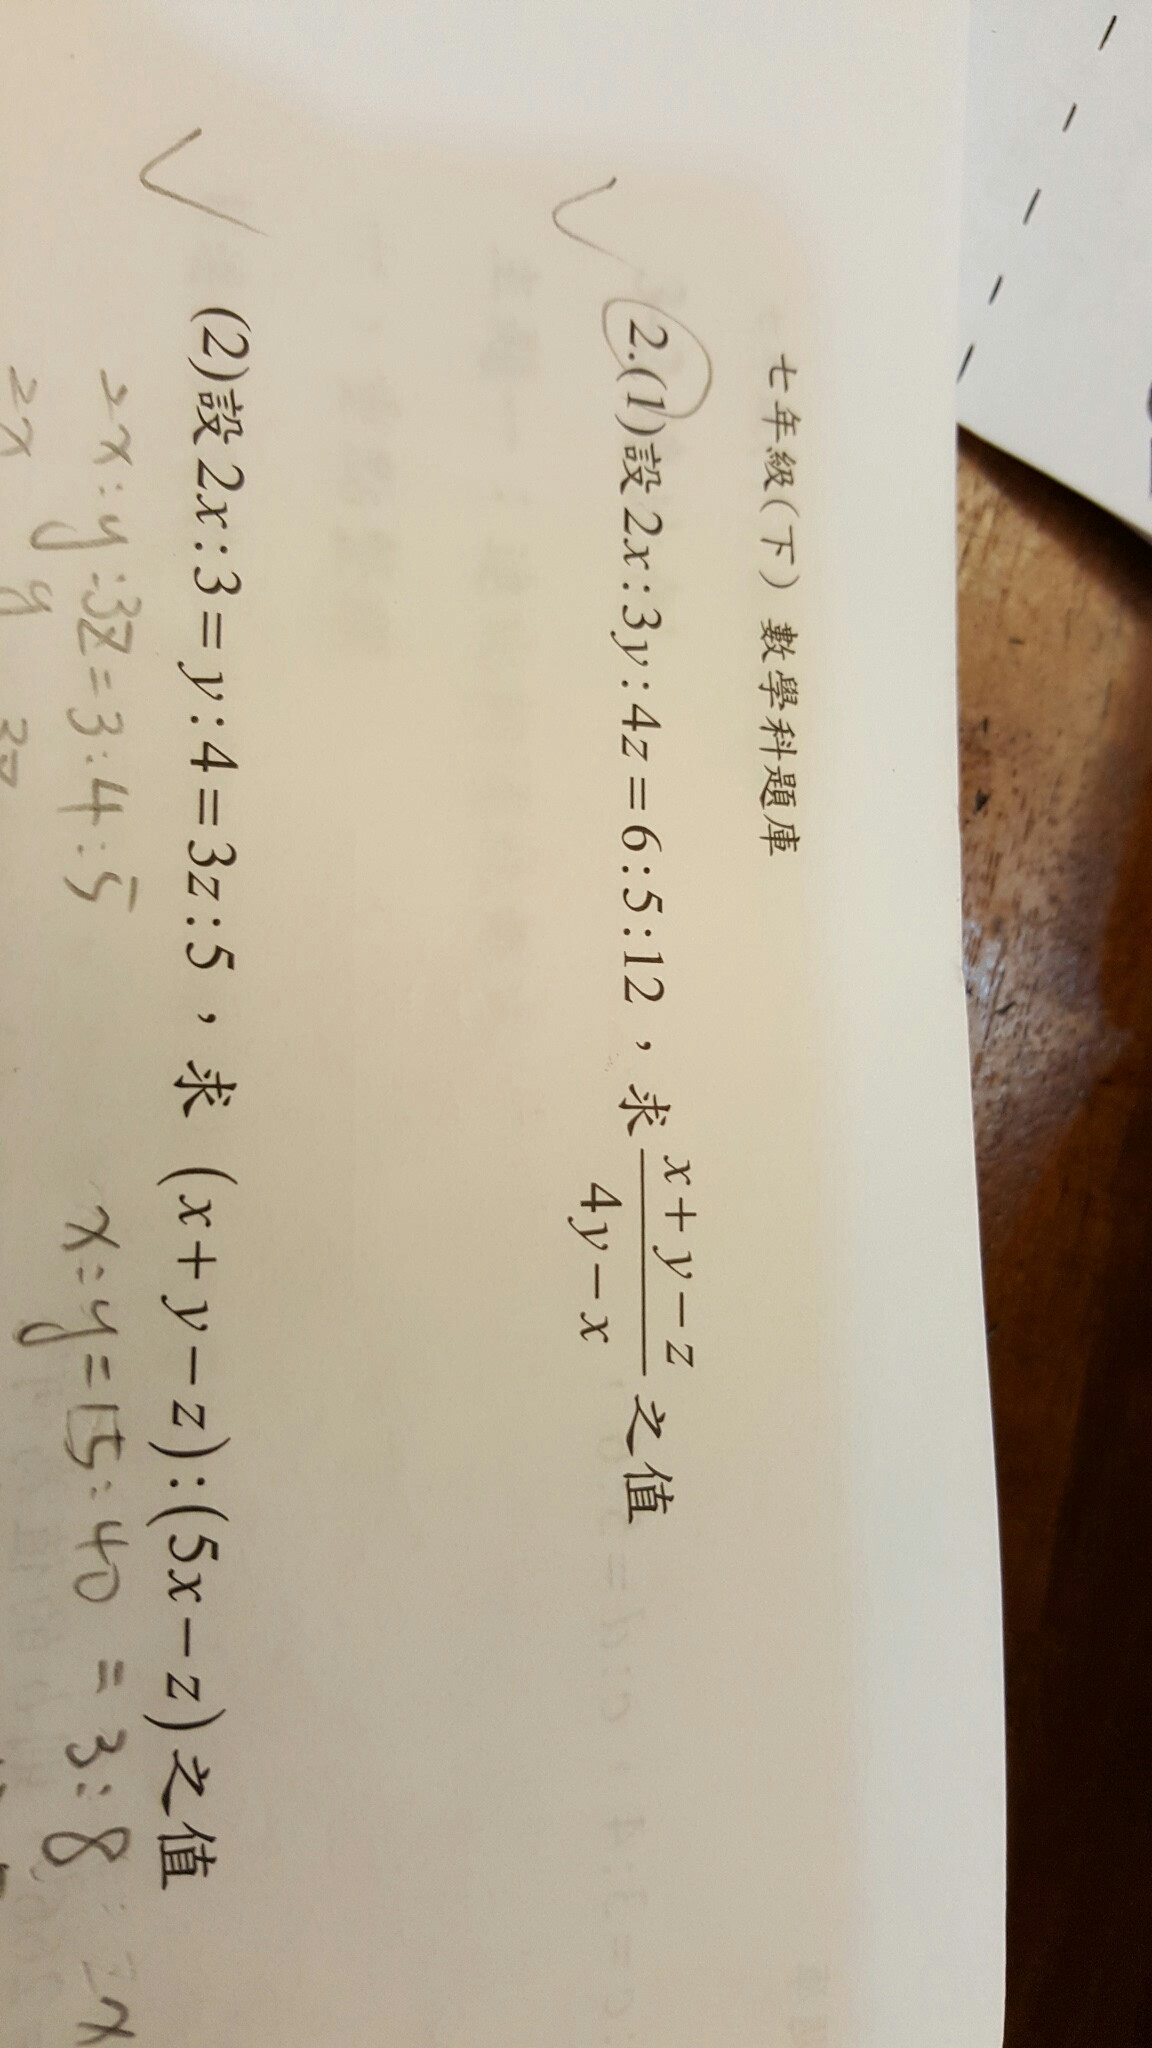 七年級(下)數學科題庫
2.(1)設2x:3y:4z=6:5:12，求 x+y−z / 4y−x 之值
(2)設2x:3=y:4=3z:5，求 (x+y−z):(5x−z)之值
2x:y:3z=3:4:5
x:y=15:40=3:8
2x y 3z